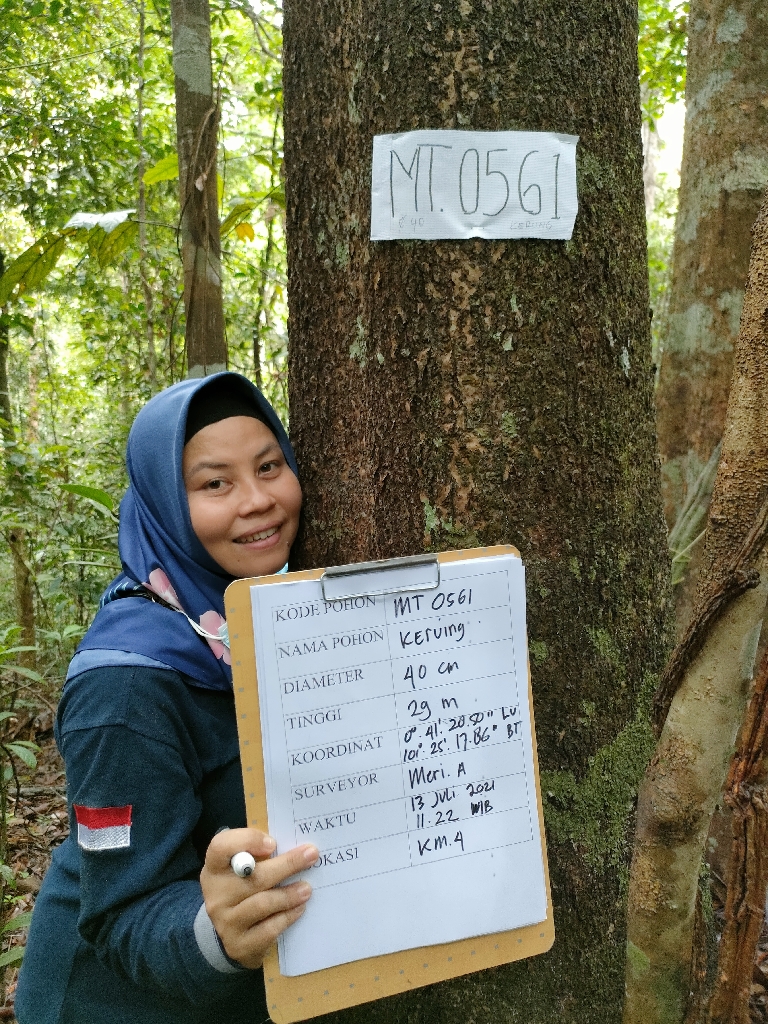 MT. 0561
KERUING
KODE POHON MT 0561
NAMA POHON Keruing
DIAMETER 40 cm
TINGGI 29 m
KOORDINAT 0° 41'. 20.50" LU
101° 25'. 17.86" BT
SURVEYOR Meri. A
WAKTU 13 Juli 2021
11.22 WIB
KM.4